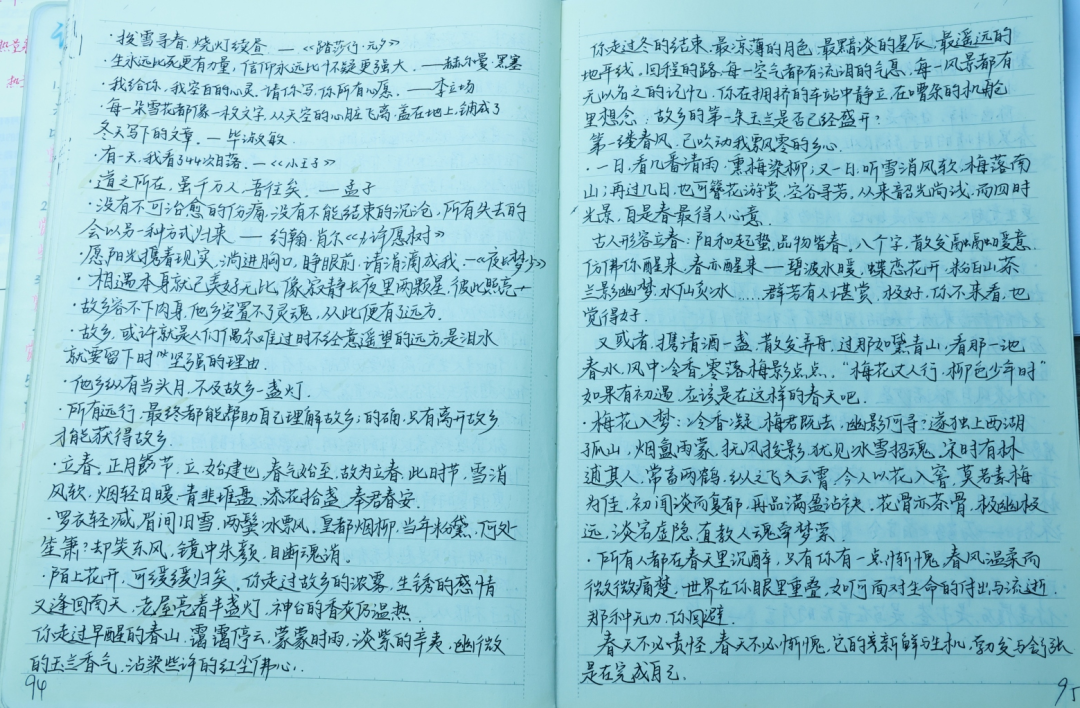 ·拨雪寻春，烧灯续昼 —《踏莎行·元夕》
·生永远比死更有力量，信仰永远比怀疑更强大。——赫尔曼·黑塞
·我给你，我空白的心灵，请你写，你所有心愿。——李立扬
·每一朵雪花都像一枚文字，从天空的心脏飞离，盖在地上，铺成了
冬天写下的文章。——毕淑敏
·有一天，我看了44次日落。—《小王子》
·道之所在，虽千万人，吾往矣。——孟子
·没有不可治愈的伤痛，没有不能结束的沉沦，所有失去的
会以另一种方式归来 —— 约翰·肖尔《许愿树》
·愿阳光携着现实，淌进胸口，睁眼前，请涓滴成我。
·相遇本身就已美好无比，像寂静长夜里两颗星，彼此照亮。
·故乡容不下肉身，他乡安置不了灵魂，从此便有了远方。
·故乡，或许就是人们偶尔难过时不经意遥望的远方，是泪水
就要留下时坚强的理由。
·他乡纵有当头月，不及故乡一盏灯。
·所有远行，最终都能帮助自己理解故乡；的确，只有离开故乡
才能获得故乡。
·立春，正月节，立，始建也，春气始至，故为立春，此时节，雪消
风软，烟轻日暖，青韭堆盘，添花拾盏，奉君春安。
·罗衣轻减，眉间旧雪，两鬓冰飘风。皇都烟柳，当年粉黛，何处
笙箫？却笑东风，镜中朱颜，目断魂消。
·陌上花开，可缓缓归矣。你走过故乡的浓雾，生锈的感情
又逢回南天，老屋亮着半盏灯，神台的香灰仍温热。
你走过早醒的春山，霭霭停云，蒙蒙时雨，淡紫的辛夷，幽微
的玉兰香气，沾染些许的红尘佛心。
94
你走过冬的结束，最凉薄的月色，最黯淡的星辰，最遥远的
地平线，回程的路，每一空气都有流泪的气息，每一风景都有
无以名之的记忆。你在拥挤的车站中静立，在嘈杂的机舱
里想念：故乡的第一朵玉兰是否已经盛开？
第一缕春风，已吹动我飘零的乡心。
一日，看几番清雨，熏梅染柳；又一日，听雪消风软，梅落南
山；再过几日，也可簪花游赏，空谷寻芳，从来韶光尚浅，而四时
光景，自是春最得人心意。
古人形容立春：阳和起蛰，品物皆春。八个字，散发融融暖意
仿佛你醒来，春亦醒来——碧波水暖，蝶恋花开，粉白山茶
兰影幽梦，水仙……群芳有人堪赏，极好，你不来看，也
觉得好。
又或者，携清酒一盏，散发弄舟，过那如黛青山，看那一池
春水，风中冷香，零落梅影点点。“梅花丈人行，柳色少年时”
如果有初遇，应该是在这样的春天吧。
·梅花入梦：冷香凝，梅君既去，幽影何寻？遂独上西湖
孤山，烟盘雨蒙，抚风投影，犹见冰雪招魂，宋时有林
逋其人，常畜两鹤，纵之飞入云霄，今人以花入窨，莫若素梅
为佳，初闻淡而复郁，再品满盈沾袂，花骨亦茶骨，极幽极
远，淡宕虚隐，直教人魂牵梦萦。
·所有人都在春天里沉醉，只有你有一点惭愧，春风温柔而
微微痛楚，世界在你眼里重叠，如何面对生命的付出与流逝
那种无力，你回避。
春天不必责怪，春天不必惭愧，它的崭新鲜与生机，勃发与舒张
是在完成自己。
95